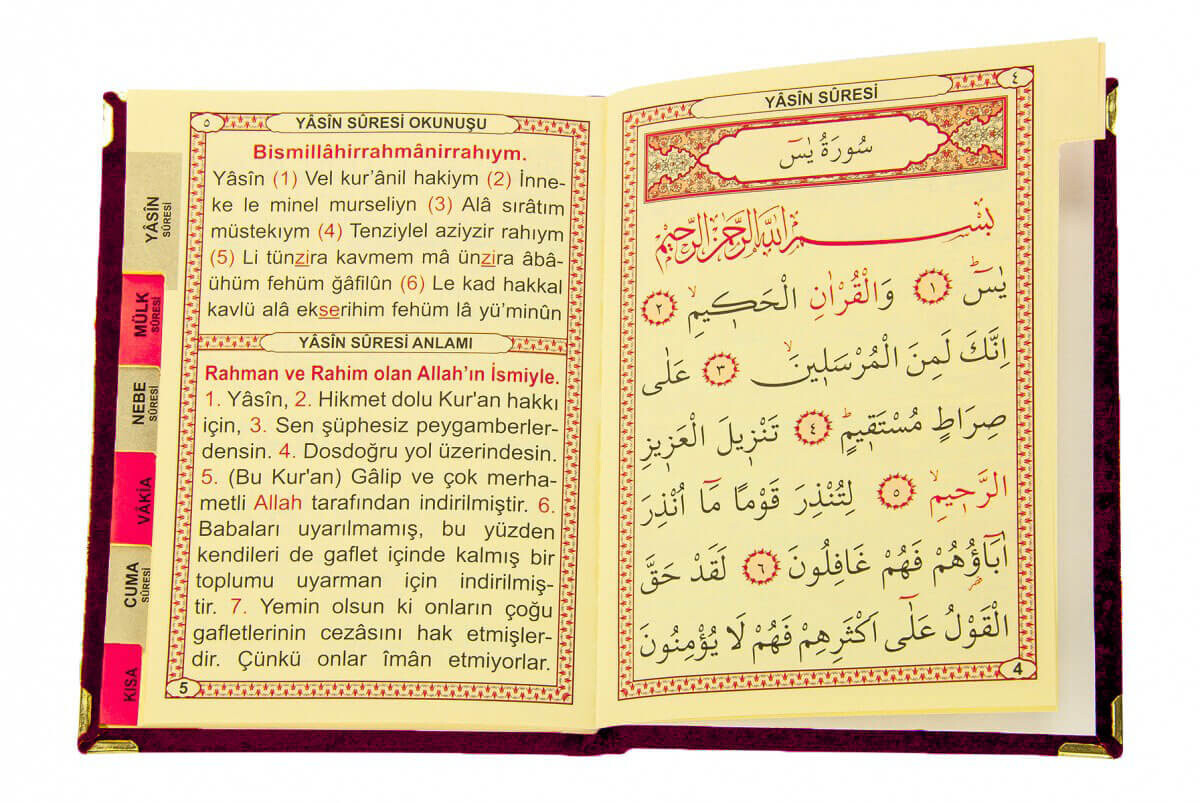 YÂSÎN SÛRESİ
٤
سُورَةُ يٰسٓ
بِسْمِ اللّٰهِ الرَّحْمٰنِ الرَّحٖيمِ
يٰسٓ ۚ ﴿١﴾ وَالْقُرْاٰنِ الْحَكٖيمِ ۙ ﴿٢﴾
اِنَّكَ لَمِنَ الْمُرْسَلٖينَ ۙ ﴿٣﴾ عَلٰى
صِرَاطٍ مُسْتَقٖيمٍ ؕ ﴿٤﴾ تَنْزٖيلَ الْعَزٖيزِ
الرَّحٖيمِ ۙ ﴿٥﴾ لِتُنْذِرَ قَوْمًا مَٓا اُنْذِرَ
اٰبَٓاؤُهُمْ فَهُمْ غَافِلُونَ ﴿٦﴾ لَقَدْ حَقَّ
الْقَوْلُ عَلٰٓى اَكْثَرِهِمْ فَهُمْ لَا يُؤْمِنُونَ
4
٥
YÂSÎN SÛRESİ OKUNUŞU
Bismillâhirrahmânirrahıym.
Yâsîn (1) Vel kur’ânil hakiym (2) İnne-
ke le minel murseliyn (3) Alâ sırâtım
müstekıym (4) Tenziylel aziyzir rahıym
(5) Li tünzira kavmem mâ ünzira âbâ-
ühüm fehüm ğafilûn (6) Le kad hakkal
kavlü alâ ekserihim fehüm lâ yü’minûn
YÂSÎN SÛRESİ ANLAMI
Rahman ve Rahim olan Allah’ın İsmiyle.
1. Yâsîn, 2. Hikmet dolu Kur'an hakkı
için, 3. Sen şüphesiz peygamberler-
densin. 4. Dosdoğru yol üzerindesin.
5. (Bu Kur'an) Gâlip ve çok merha-
metli Allah tarafından indirilmiştir. 6.
Babaları uyarılmamış, bu yüzden
kendileri de gaflet içinde kalmış bir
toplumu uyarman için indirilmiş-
tir. 7. Yemin olsun ki onların çoğu
gafletlerinin cezâsını hak etmişler-
dir. Çünkü onlar îmân etmiyorlar.
5
YÂSÎN
SÛRESİ
MÜLK
SÛRESİ
NEBE
SÛRESİ
VÂKIA
CUMA
SÛRESİ
KISA